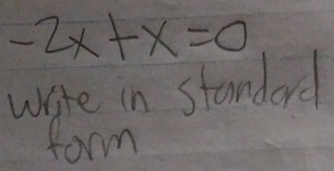 -2x+x=0
write in standard
form